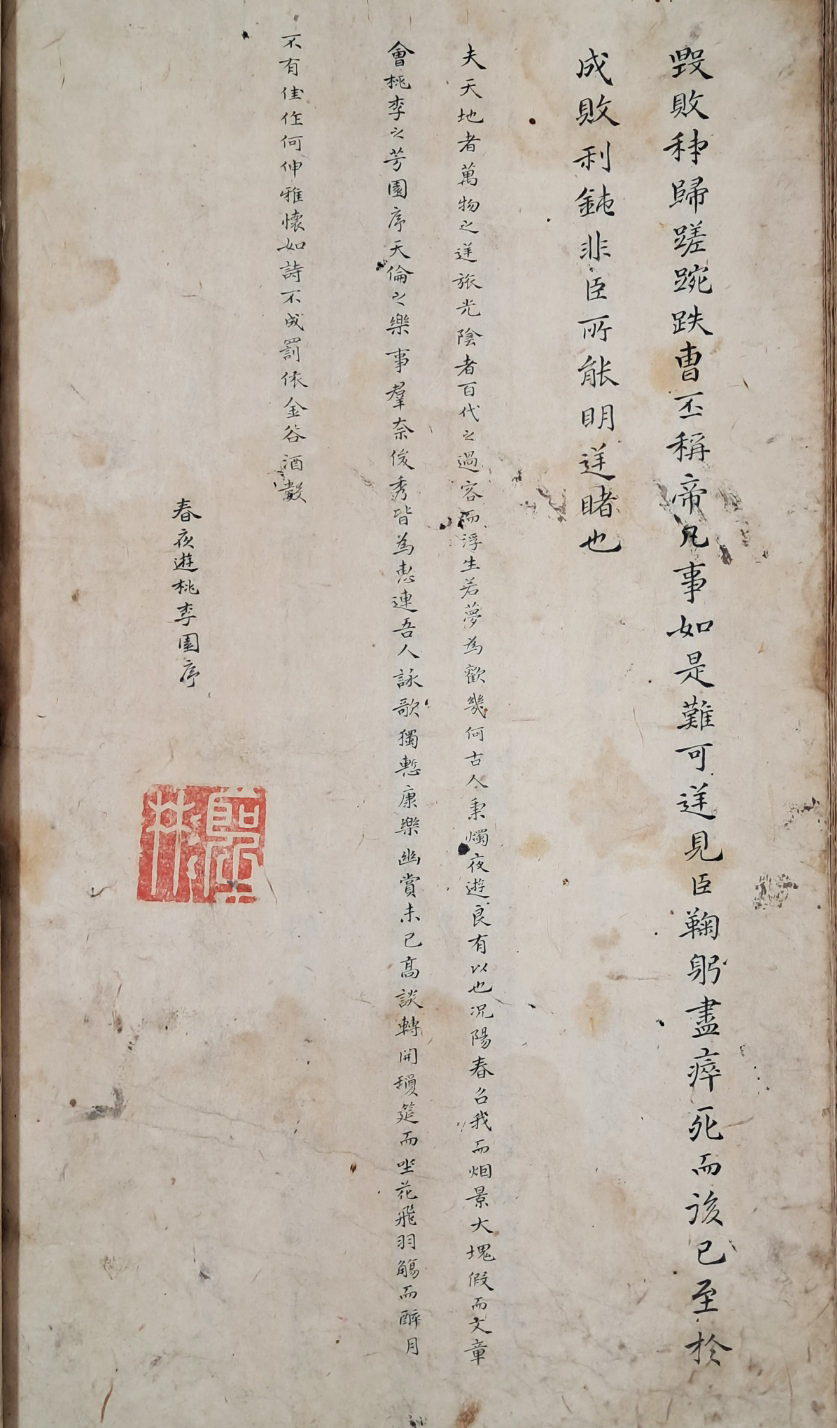 毀敗秭歸蹉踠跌曹丕稱帝凡事如是難可逆見臣鞠躬盡瘁死而後已至於
成敗利鈍非臣所能明逆睹也
夫天地者萬物之逆旅光陰者百代之過客而浮生若夢為歡幾何古人秉燭夜遊良有以也況陽春召我而烟景大塊假而文章
會桃李之芳園序天倫之樂事羣奈俊秀皆為惠連吾人詠歌獨慙康樂幽賞未已高談轉開瓊筵而坐花飛羽觴而醉月
不有佳作何伸雅懷如詩不成罰依金谷酒數
春夜遊桃李園序